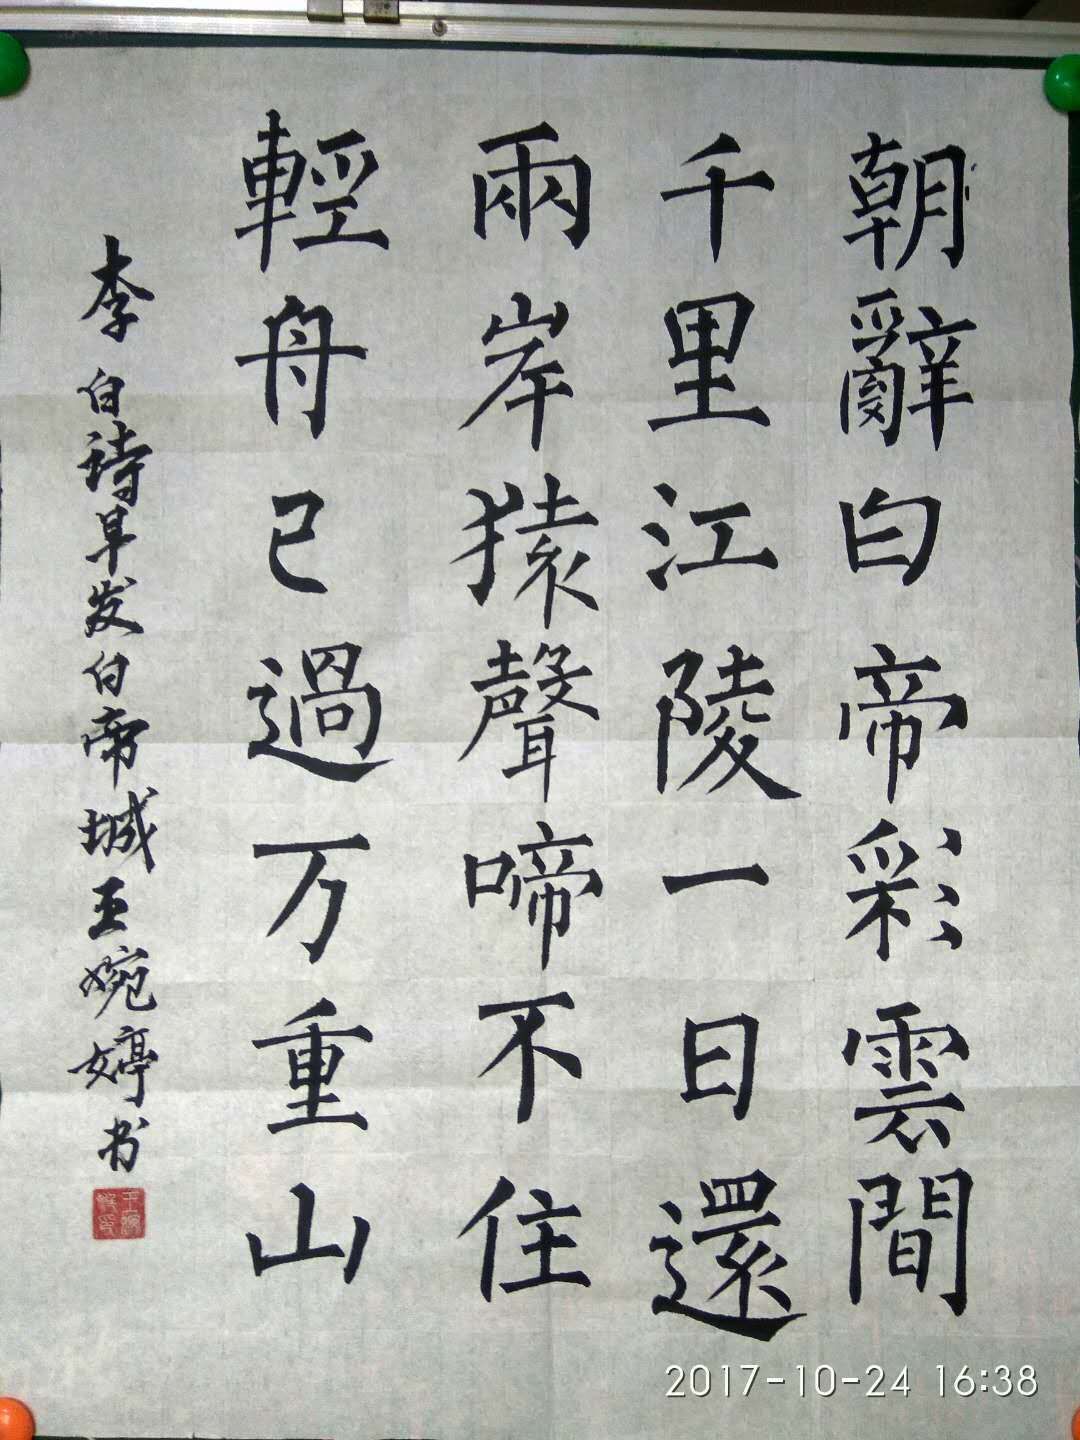 朝辭白帝彩雲間
千里江陵一日還
兩岸猿聲啼不住
輕舟已過万重山
李白诗早发白帝城王婉婷书
2017-10-24 16:38